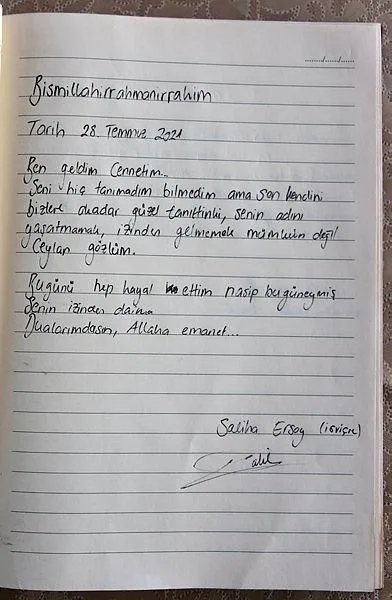 ...../...../.....
Bismillahirrahmanirrahim
Tarih 28. Temmuz 2021
Ben geldim Cennetim...
Seni hiç tanımadım bilmedim ama sen kendini
bizlere okadar güzel tanıttınki, senin adını
yaşatmamak, izinden gelmemek mümkün değil
Ceylan gözlüm.
Bugünü hep hayal ettim nasip bu güneymiş
Senin izinden daima
Dualarımdasın, Allaha emanet...
Saliha Ersoy (İsviçre)